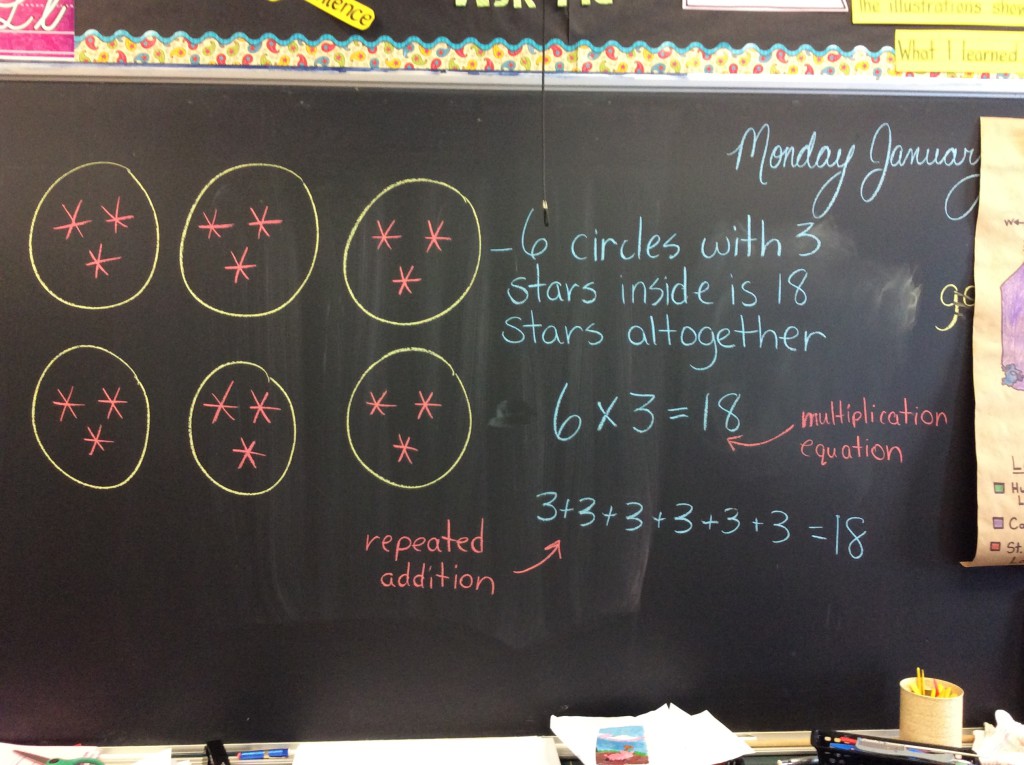 the illustrations show
What I learned
Monday January
- 6 circles with 3
stars inside is 18
stars altogether
6 x 3 = 18
multiplication
equation
3+3+3+3+3+3 = 18
repeated
addition